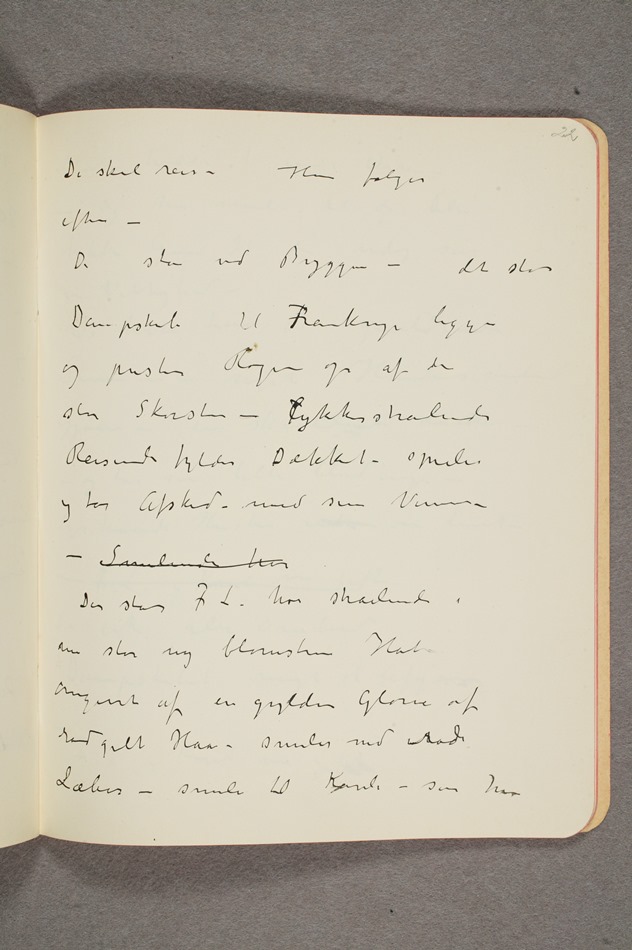 22
De skal reise Han følger
efter –
De star ved Bryggen – det store
Dampskib til Frankrige ligger
og puster Røgen op af de
store Skorstene – Lykkestraalende
Reisende fylder Dækket – smiler
og tar Afsked – med sine Venner –
– Smilende hos
Der star F L. hos straalende i
en stor ny blomstret Hat
omgivet af en gylden Glorie af
rødgult Haar – smiler med røde
Læber – smiler til Karle – som han